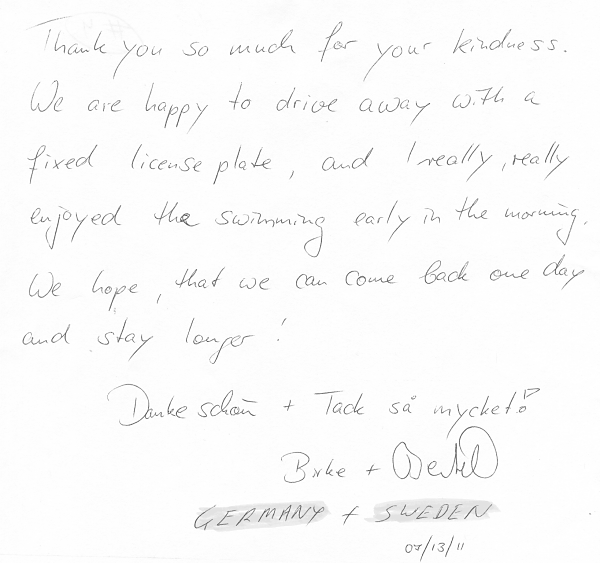 Thank you so much for your kindness.
We are happy to drive away with a
fixed license plate, and I really, really
enjoyed the swimming early in the morning.
We hope, that we can come back one day
and stay longer!
Danke schön + Tack så mycket!
Birke +
GERMANY + SWEDEN
07/13/11